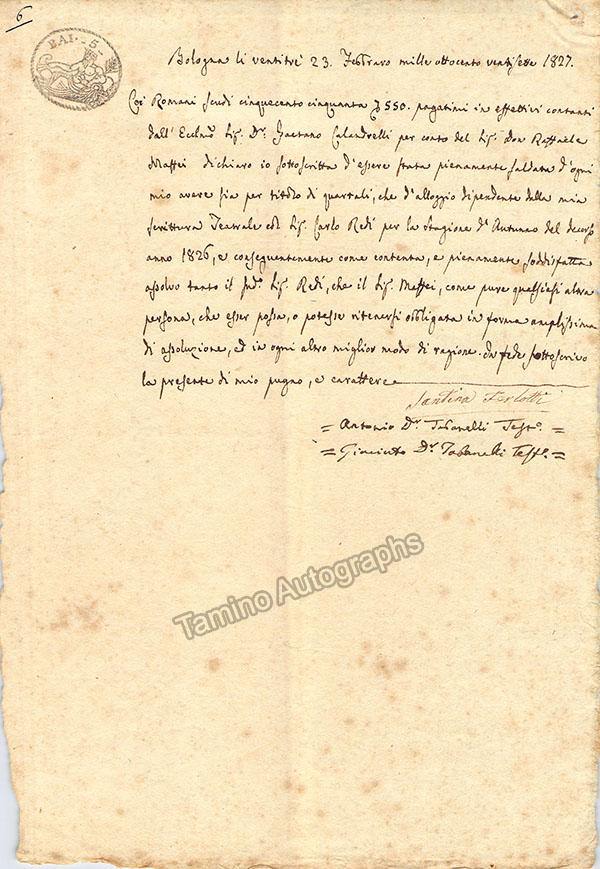 6
BAI. 5.
Bologna li ventitrè 23. Febbraro mille ottocento ventisette 1827.
Coi Romani scudi cinquecento cinquanta 550. pagatimi in effettivi contanti
dall' Eccl̃mo Sig. Dr. Gaetano Calandrelli per conto del Sig. Don Raffaele
Maffei dichiaro io sottoscritta d'essere stata pienamente saldata d'ogni
mio avere sia per titolo di quartali, che d'alloggio dipendente dalla mia
scrittura Teatrale col Sig. Carlo Redi per la Stagione d'Autunno del decorso
anno 1826, e conseguentemente come contenta, e pienamente soddisfatta
assolvo tanto il Sud.o Sig. Redi, che il Sig. Maffei, come pure qualsiasi altra
persona, che esser possa, o potesse ritenersi obbligata in forma amplissima
di assoluzione, ed in ogni altro miglior modo di ragione. In fede sottoscrivo
la presente di mio pugno, e carattere
Santina Ferlotti
= Antonio Dr. Tabanelli Testo. =
= Giacinto Dr. Tabanelli Testo. =
Tamino Autographs